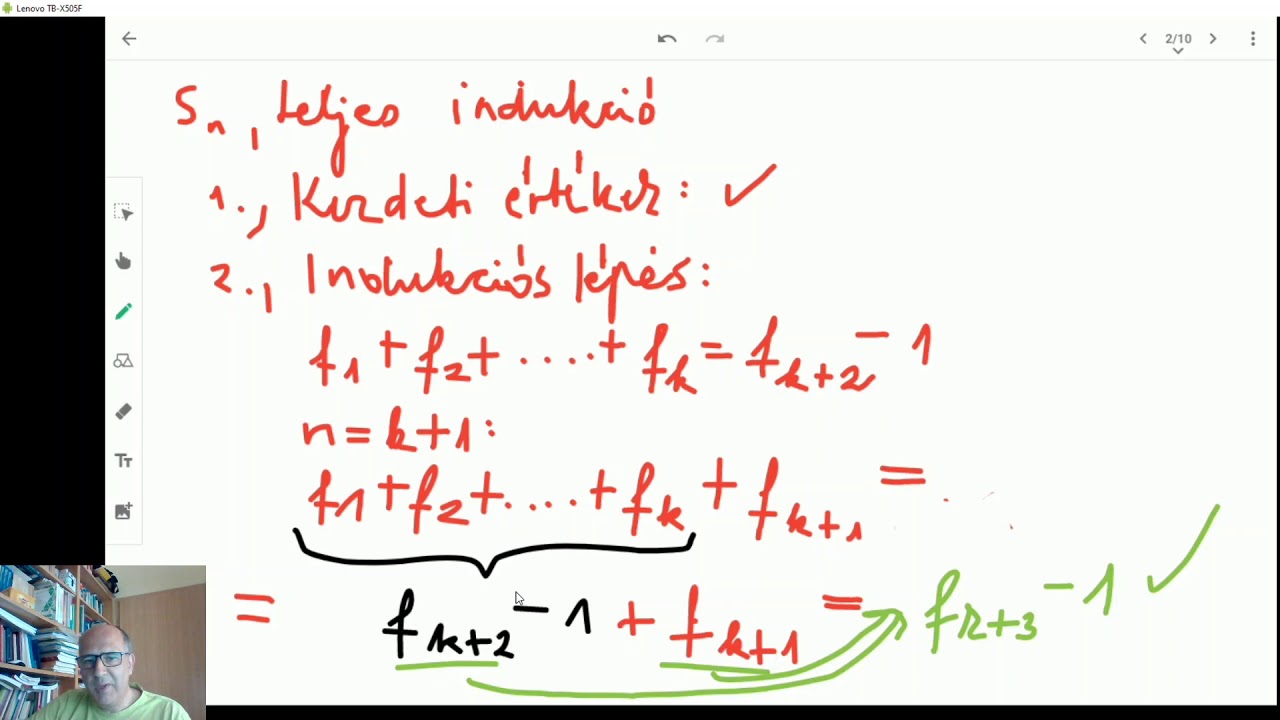 Lenovo TB-X505F
2/10
Sn, teljes indukció
1., Kezdeti értékek: ✓
2., Indukciós lépés:
f₁ + f₂ + .... + fₖ = fₖ₊₂ - 1
n = k+1:
f₁ + f₂ + .... + fₖ + fₖ₊₁ =
= fₖ₊₂ - 1 + fₖ₊₁ = fₖ₊₃ - 1 ✓
Tт